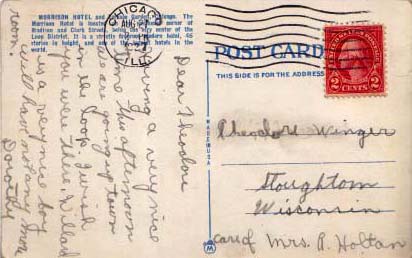 MORRISON HOTEL and Terrace Garden, Chicago. The
Morrison Hotel is located at the corner of
Madison and Clark Streets, being the very center of the
Loop District. It is a strictly fireproof modern hotel,
stories in height, and one of the hotels in the
world.
CHICAGO
AUG
ILL.
POST CARD
THIS SIDE IS FOR THE ADDRESS
UNITED STATES POSTAGE
2 CENTS 2
MADE IN U.S.A.
Dear Theodore
Having a very nice
time. This afternoon
we are going up town
in the Loop. I wish
you were here. Willard
is a very nice boy
will have not any more
room.
Dorothy
Theodore Winger
Stoughton
Wisconsin
care of Mrs. A. Holtan
M